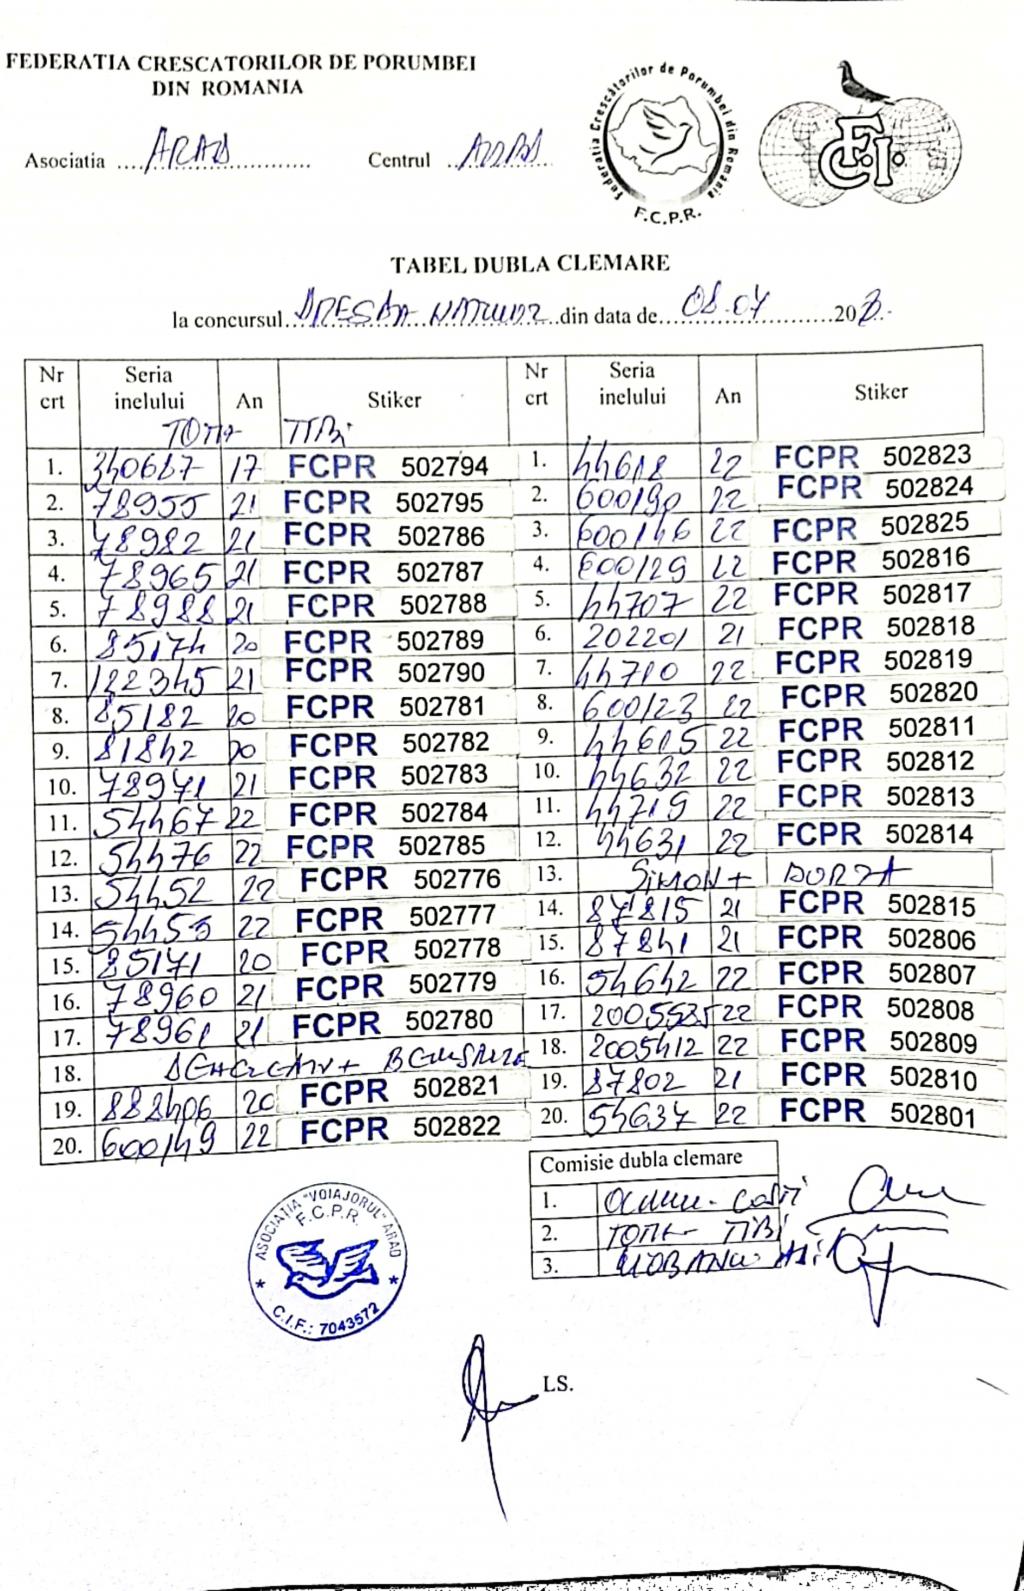 FEDERATIA CRESCATORILOR DE PORUMBEI
DIN ROMANIA
Asociatia ....ARAD................
Centrul ..ARAD..
Federatia Crescătorilor de Porumbei din Romania
F.C.P.R.
F.C.I.
TABEL DUBLA CLEMARE
la concursul.. ..din data de...08.07...........20
Nr crt Seria inelului An Stiker Nr crt Seria inelului An Stiker
TOTH TIBI
1. 340667 17 FCPR 502794 1. 44618 22 FCPR 502823
2. 78955 21 FCPR 502795 2. 600190 22 FCPR 502824
3. 78982 21 FCPR 502786 3. 600146 22 FCPR 502825
4. 78965 21 FCPR 502787 4. 600129 22 FCPR 502816
5. 78988 21 FCPR 502788 5. 44707 22 FCPR 502817
6. 85174 20 FCPR 502789 6. 202201 21 FCPR 502818
7. 182345 21 FCPR 502790 7. 44710 22 FCPR 502819
8. 85182 20 FCPR 502781 8. 600123 22 FCPR 502820
9. 81842 20 FCPR 502782 9. 44615 22 FCPR 502811
10. 78971 21 FCPR 502783 10. 44632 22 FCPR 502812
11. 54467 22 FCPR 502784 11. 44719 22 FCPR 502813
12. 54476 22 FCPR 502785 12. 44631 22 FCPR 502814
13. 54452 22 FCPR 502776 13. SIMON +
14. 54455 22 FCPR 502777 14. 87815 21 FCPR 502815
15. 85171 20 FCPR 502778 15. 87841 21 FCPR 502806
16. 78960 21 FCPR 502779 16. 54642 22 FCPR 502807
17. 78961 21 FCPR 502780 17. 2005535 22 FCPR 502808
18. 18. 2005412 22 FCPR 502809
19. 888406 20 FCPR 502821 19. 87802 21 FCPR 502810
20. 600149 22 FCPR 502822 20. 54637 22 FCPR 502801
Comisie dubla clemare
1. COSTI
2. TOTH TIBI
3.
ASOCIATIA "VOIAJORUL" ARAD
F.C.P.R.
C.I.F.: 7043572
LS.